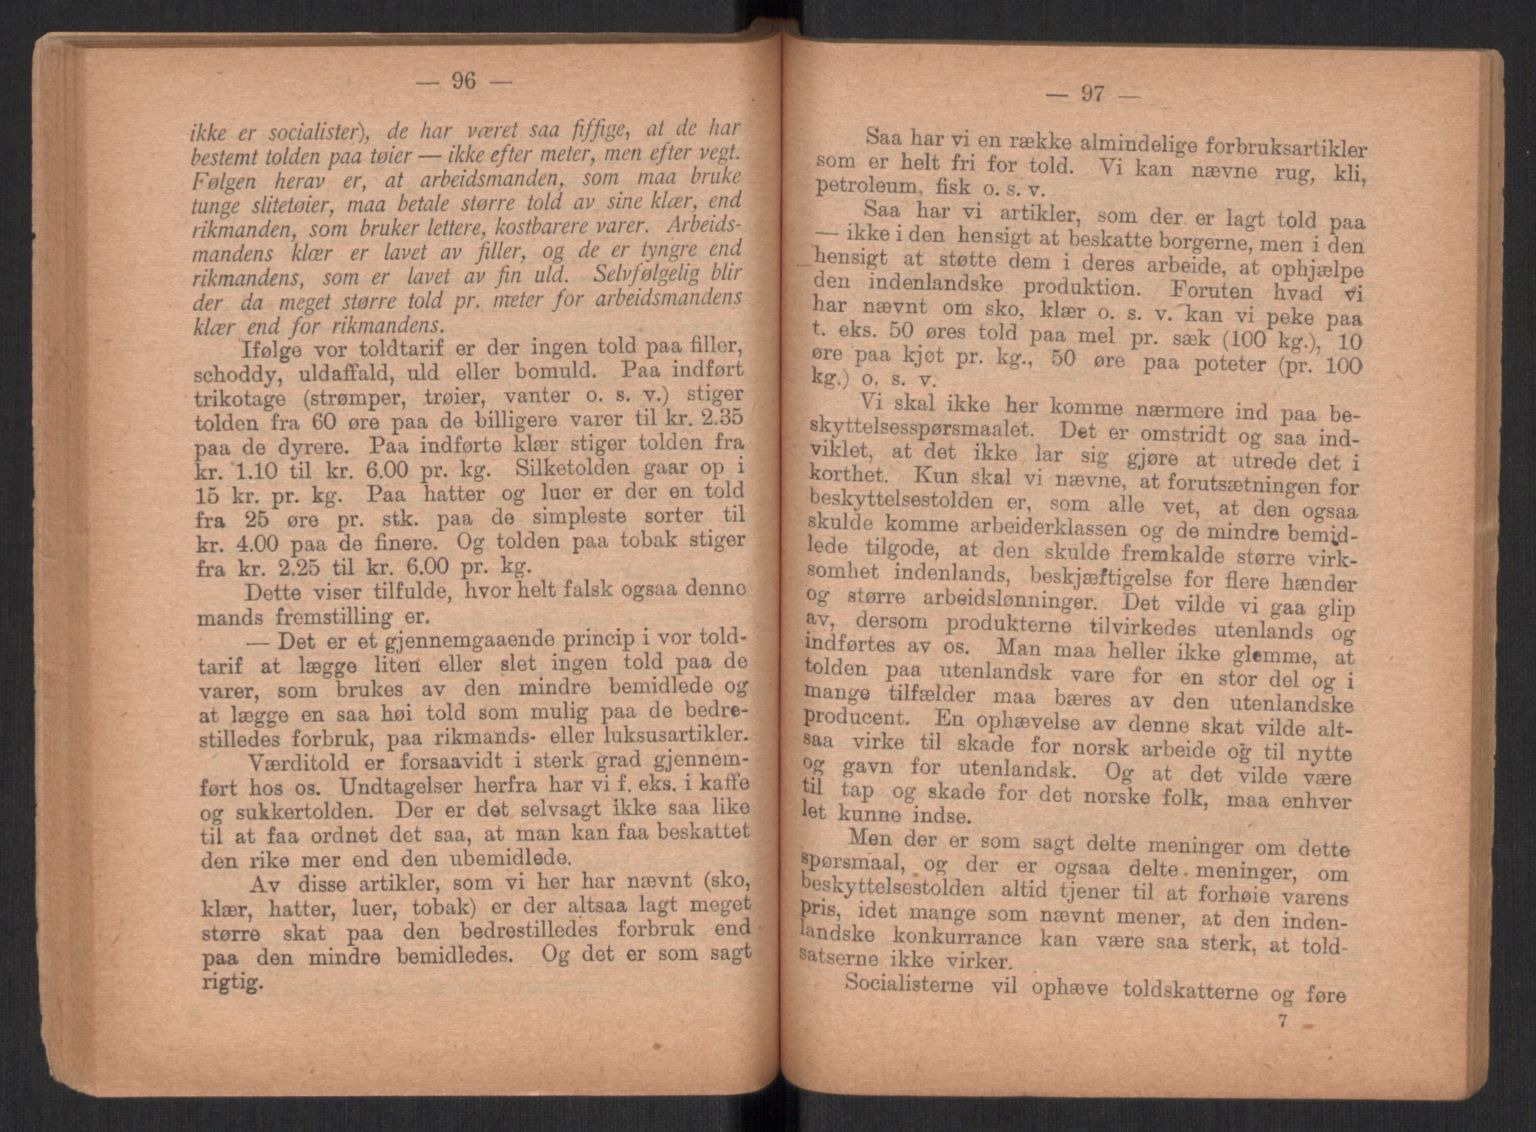 — 96 —
ikke er socialister), de har været saa fiffige, at de har
bestemt tolden paa tøier — ikke efter meter, men efter vegt.
Følgen herav er, at arbeidsmanden, som maa bruke
tunge slitetøier, maa betale større told av sine klær, end
rikmanden, som bruker lettere, kostbarere varer. Arbeids-
mandens klær er lavet av filler, og de er tyngre end
rikmandens, som er lavet av fin uld. Selvfølgelig blir
der da meget større told pr. meter for arbeidsmandens
klær end for rikmandens.
Ifølge vor toldtarif er der ingen told paa filler,
schoddy, uldaffald, uld eller bomuld. Paa indført
trikotage (strømper, trøier, vanter o. s. v.) stiger
tolden fra 60 øre paa de billigere varer til kr. 2.35
paa de dyrere. Paa indførte klær stiger tolden fra
kr. 1.10 til kr. 6.00 pr. kg. Silketolden gaar op i
15 kr. pr. kg. Paa hatter og luer er der en told
fra 25 øre pr. stk. paa de simpleste sorter til
kr. 4.00 paa de finere. Og tolden paa tobak stiger
fra kr. 2.25 til kr. 6.00 pr. kg.
Dette viser tilfulde, hvor helt falsk ogsaa denne
mands fremstilling er.
— Det er et gjennemgaaende princip i vor told-
tarif at lægge liten eller slet ingen told paa de
varer, som brukes av den mindre bemidlede og
at lægge en saa høi told som mulig paa de bedre-
stilledes forbruk, paa rikmands- eller luksusartikler.
Værditold er forsaavidt i sterk grad gjennem-
ført hos os. Undtagelser herfra har vi f. eks. i kaffe
og sukkertolden. Der er det selvsagt ikke saa like
til at faa ordnet det saa, at man kan faa beskattet
den rike mer end den ubemidlede.
Av disse artikler, som vi her har nævnt (sko,
klær, hatter, luer, tobak) er der altsaa lagt meget
større skat paa den bedrestilledes forbruk end
paa den mindre bemidledes. Og det er som sagt
rigtig.
— 97 —
Saa har vi en række almindelige forbruksartikler
som er helt fri for told. Vi kan nævne rug, kli,
petroleum, fisk o. s. v.
Saa har vi artikler, som der er lagt told paa
— ikke i den hensigt at beskatte borgerne, men i den
hensigt at støtte dem i deres arbeide, at ophjælpe
den indenlandske produktion. Foruten hvad vi
har nævnt om sko, klær o. s. v. kan vi peke paa
t. eks. 50 øres told paa mel pr. sæk (100 kg.), 10
øre paa kjøt pr. kg., 50 øre paa poteter (pr. 100
kg.) o. s. v.
Vi skal ikke her komme nærmere ind paa be-
skyttelsesspørsmaalet. Det er omstridt og saa ind-
viklet, at det ikke lar sig gjøre at utrede det i
korthet. Kun skal vi nævne, at forutsætningen for
beskyttelsestolden er, som alle vet, at den ogsaa
skulde komme arbeiderklassen og de mindre bemid-
lede tilgode, at den skulde fremkalde større virk-
somhet indenlands, beskjæftigelse for flere hænder
og større arbeidslønninger. Det vilde vi gaa glip
av, dersom produkterne tilvirkedes utenlands og
indførtes av os. Man maa heller ikke glemme, at
tolden paa utenlandsk vare for en stor del og i
mange tilfælder maa bæres av den utenlandske
producent. En ophævelse av denne skat vilde alt-
saa virke til skade for norsk arbeide og til nytte
og gavn for utenlandsk. Og at det vilde være
til tap og skade for det norske folk, maa enhver
let kunne indse.
Men der er som sagt delte meninger om dette
spørsmaal, og der er ogsaa delte meninger, om
beskyttelsestolden altid tjener til at forhøie varens
pris, idet mange som nævnt mener, at den inden-
landske konkurrance kan være saa sterk, at told-
satserne ikke virker.
Socialisterne vil ophæve toldskatterne og føre
7